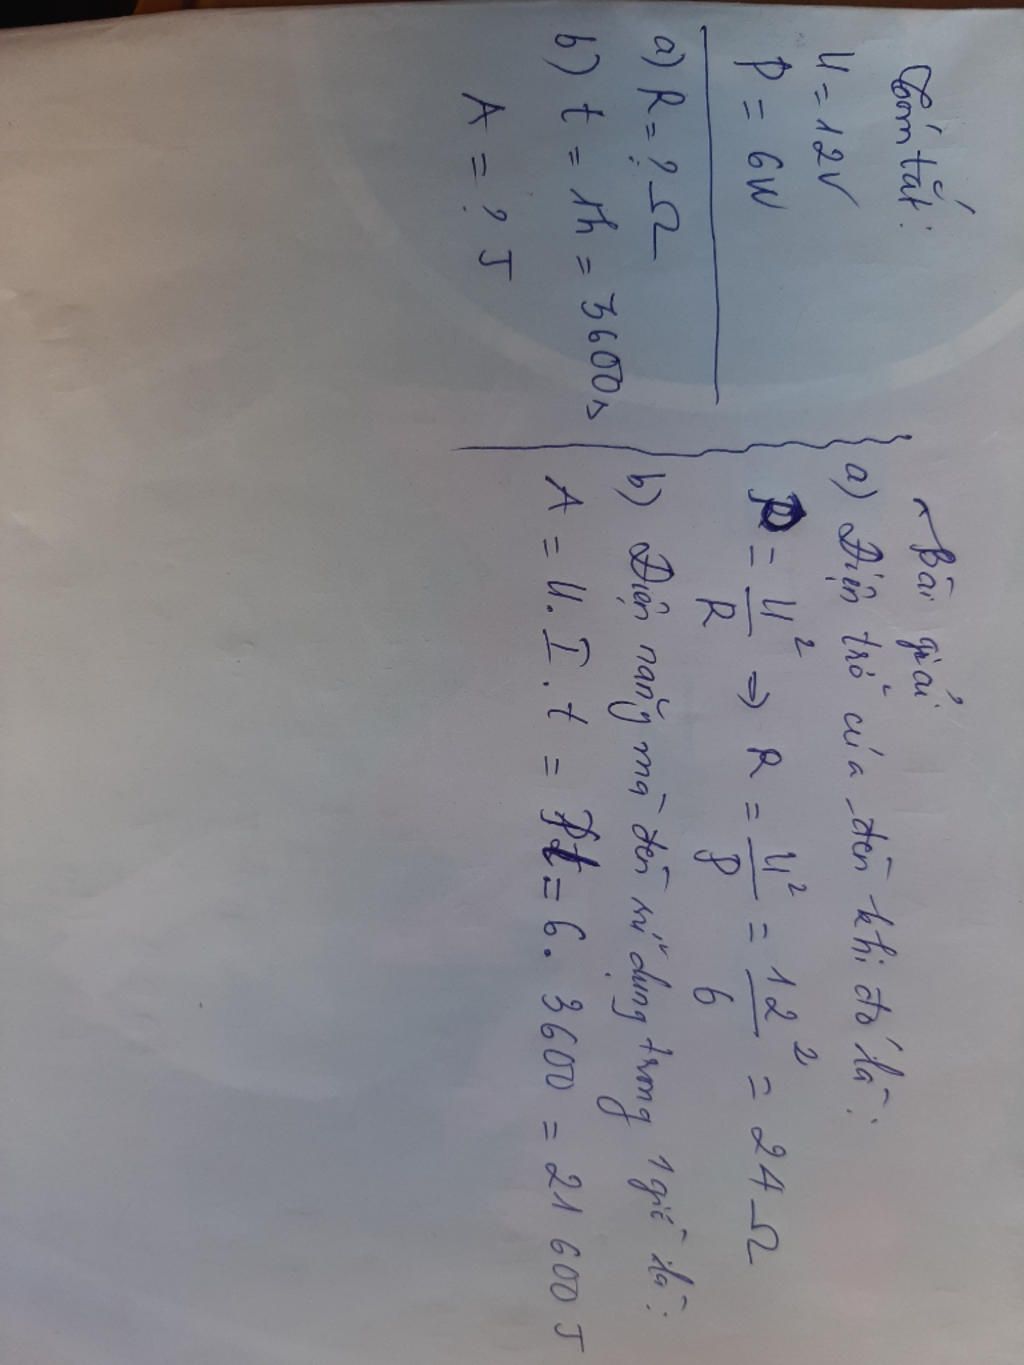 Tóm tắt:
U = 12V
P = 6W
a) R = ? Ω
b) t = 1h = 3600s
A = ? J
Bài giải
a) Điện trở của đèn khi đó là:
P = U²/R => R = U²/P = 12²/6 = 24 Ω
b) Điện năng mà đèn sử dụng trong 1 giờ là:
A = U.I.t = Pt = 6. 3600 = 21 600 J